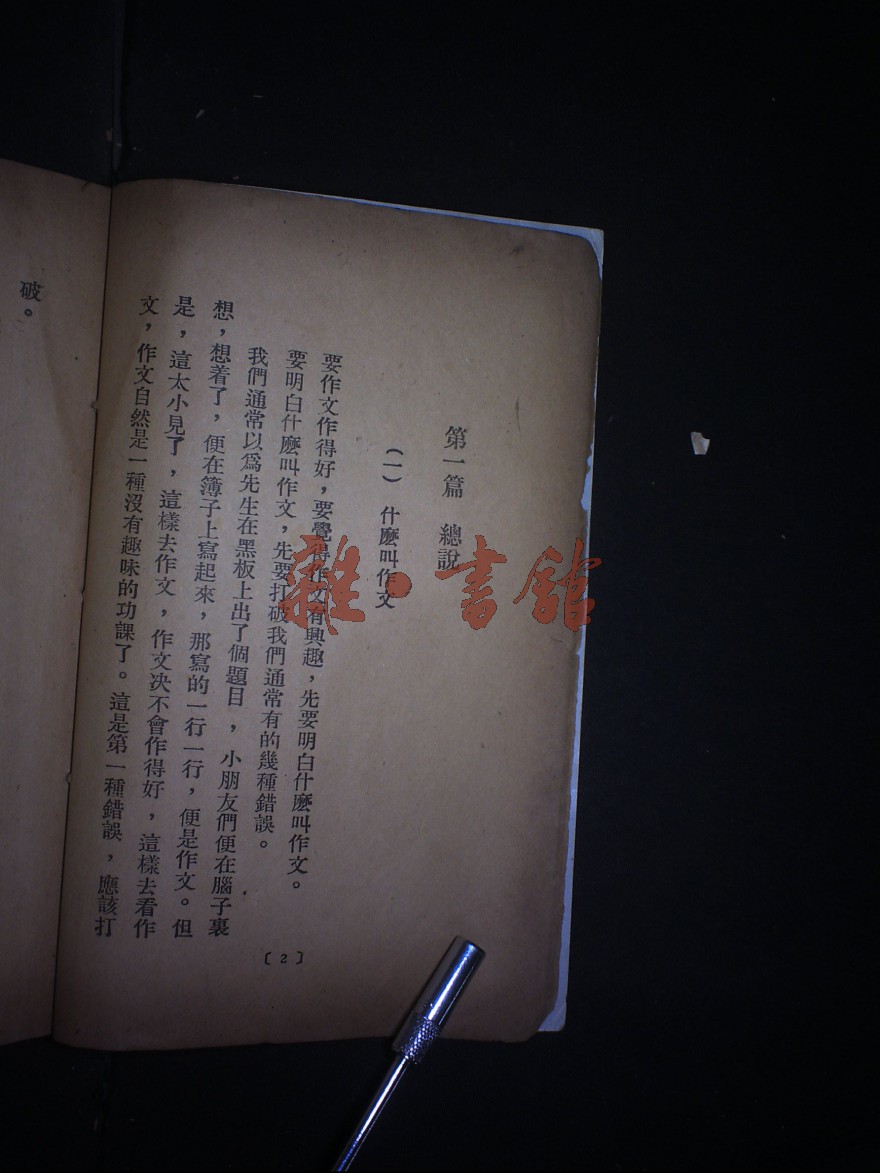 第一篇 總說
(一) 什麽叫作文
要作文作得好，要覺得作文有興趣，先要明白什麽叫作文。
要明白什麽叫作文，先要打破我們通常有的幾種錯誤。
我們通常以爲先生在黑板上出了個題目，小朋友們便在腦子裏
想，想着了，便在簿子上寫起來，那寫的一行一行，便是作文。但
是，這太小見了，這樣去作文，作文决不會作得好，這樣去看作
文，作文自然是一種沒有趣味的功課了。這是第一種錯誤，應該打
破。
〔2〕
雜·書館